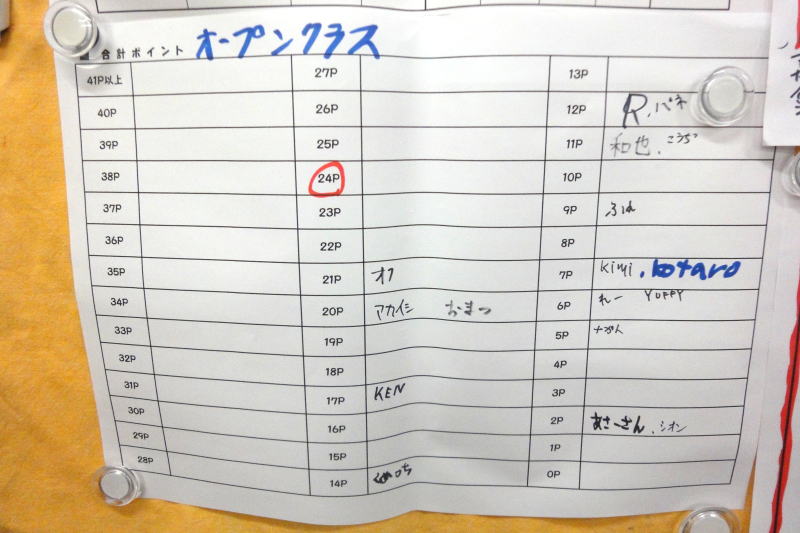 合計ポイント オープンクラス
41P以上 27P 13P
40P 26P 12P R,バネ
39P 25P 11P 和也. こうじ
38P 24P 10P
37P 23P 9P
36P 22P 8P
35P 21P オカ 7P kimi .kotaro
34P 20P アカイシ おまつ 6P れー YOPPY
33P 19P 5P
32P 18P 4P
31P 17P KEN 3P
30P 16P 2P あさーさん.シオン
29P 15P 1P
28P 14P 0P